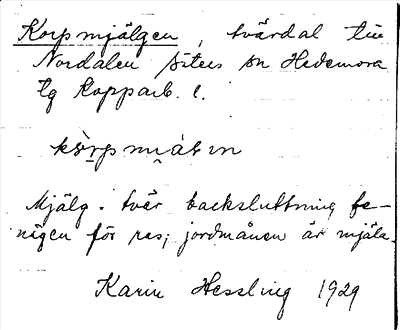 Korpmjälgen, tvärdal till
Nordalen Säters sn Hedemora
tg Kopparb. l.
Mjälg - tvär backsluttning be-
nägen för ras; jordmånen är mjäla.
Karin Hessling 1929